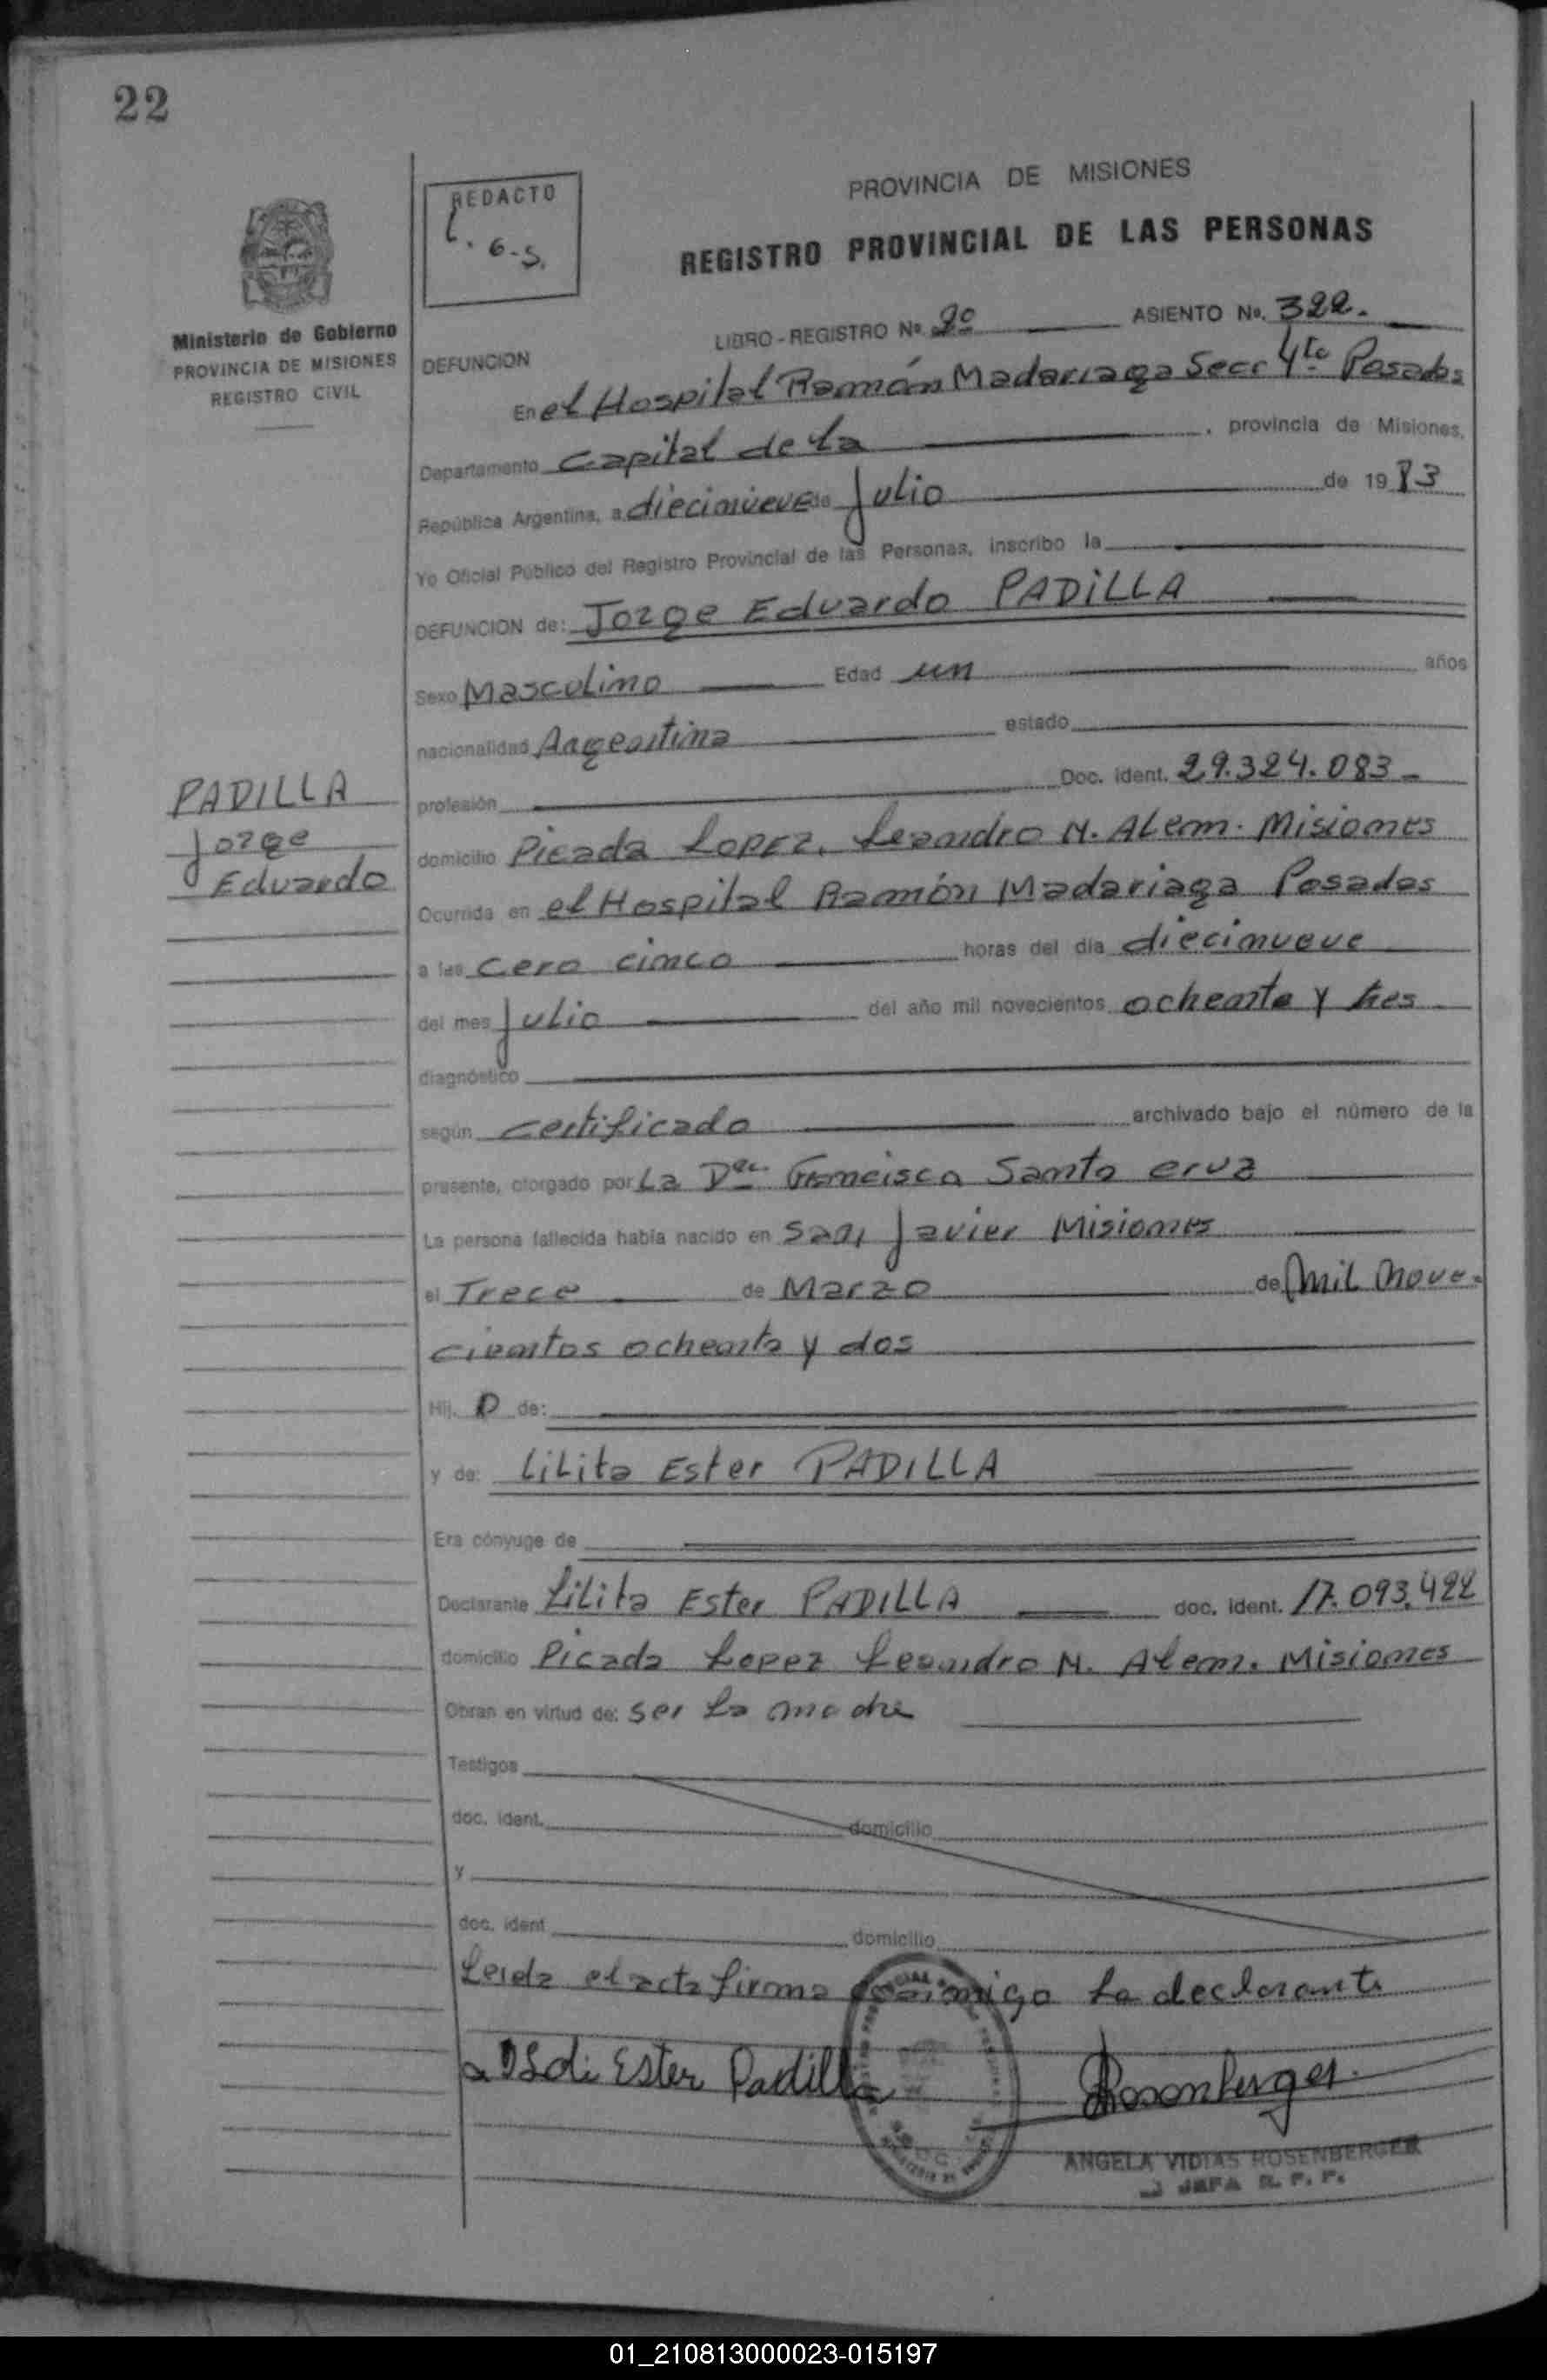 22
REDACTO
L. G-S.
PROVINCIA DE MISIONES
REGISTRO PROVINCIAL DE LAS PERSONAS
Ministerio de Gobierno
PROVINCIA DE MISIONES
REGISTRO CIVIL
LIBRO - REGISTRO No. 2º ASIENTO No. 322.
DEFUNCION
En el Hospital Ramón Madariaga Secc 4ta Posadas
Departamento Capital de la , provincia de Misiones,
República Argentina, a diecinueve de Julio de 1983
Yo Oficial Público del Registro Provincial de las Personas, inscribo la
DEFUNCION de: Jorge Eduardo PADILLA
Sexo Masculino Edad un años
nacionalidad Argentina estado
profesión Doc. ident. 29.324.083
PADILLA
Jorge
Eduardo
domicilio Picada Lopez, Leandro N. Alem. Misiones
Ocurrida en el Hospital Ramón Madariaga Posadas
a las cero cinco horas del día diecinueve
del mes Julio del año mil novecientos ochenta y tres
diagnóstico
según certificado archivado bajo el número de la
presente, otorgado por La Dra. Francisca Santa Cruz
La persona fallecida había nacido en San Javier Misiones
el Trece de Marzo de Mil Nove-
cientos ochenta y dos
Hij. o de:
y de: Lilita Ester PADILLA
Era cónyuge de
Declarante Lilita Ester PADILLA doc. ident. 17.093.422
domicilio Picada Lopez Leandro N. Alem. Misiones
Obran en virtud de: ser la madre
Testigos
doc. ident. domicilio
y
doc. ident domicilio
Leida el acta firma conmigo la declarante
Ester Padilla
Rosenberger
ANGELA VIDIAS ROSENBERGER
JEFA R. P. P.
01_210813000023-015197